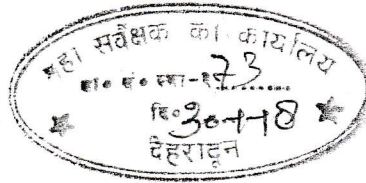 महा सर्वेक्षक का कार्यालय
73
दि० 30-1-18
देहरादून